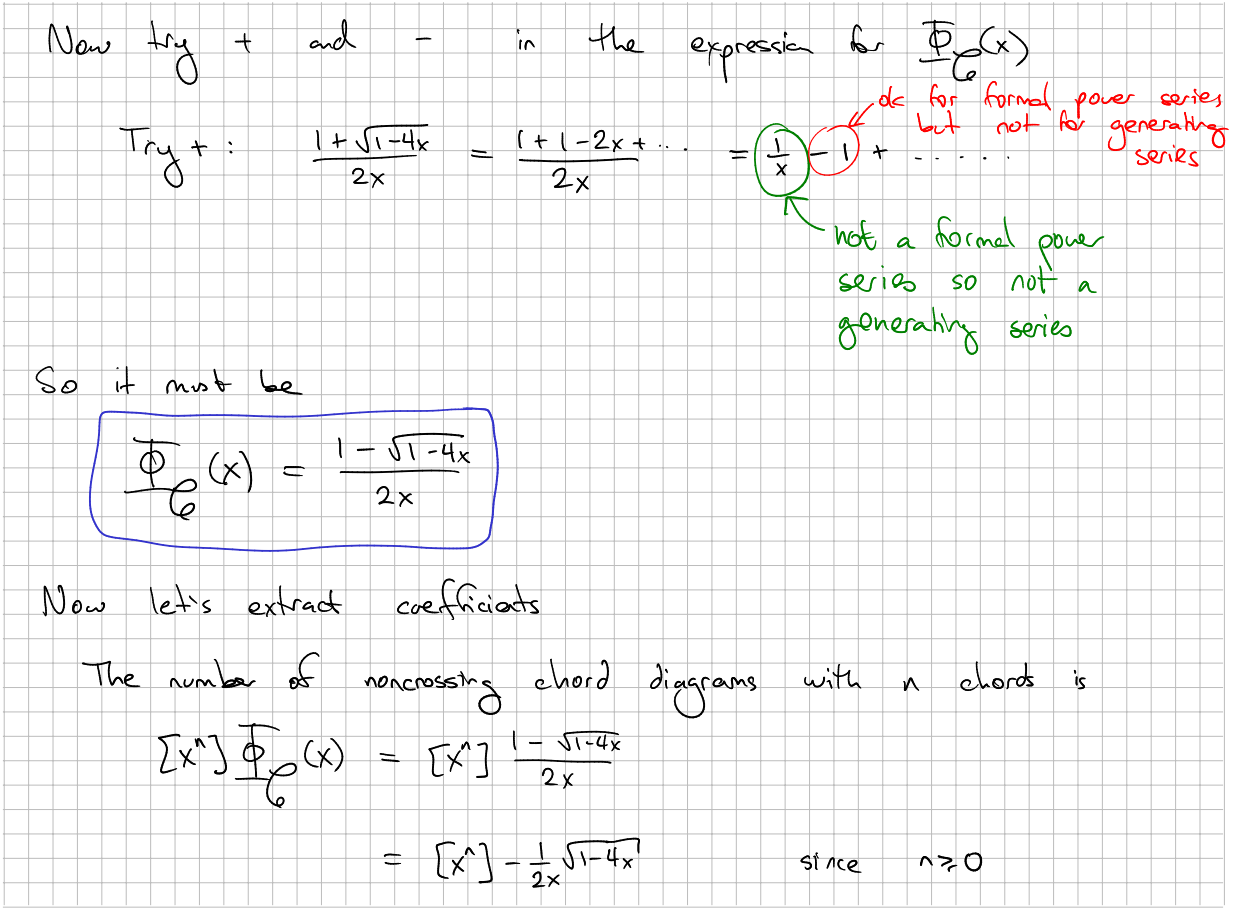 Now try + and - in the expression for Φ_𝒞(x)
ok for formal power series
but not for generating
series
Try + : (1 + √(1-4x))/(2x) = (1 + 1 - 2x + ...)/(2x) = 1/x - 1 + .....
not a formal power
series so not a
generating series
So it must be
Φ_𝒞(x) = (1 - √(1-4x))/(2x)
Now let's extract coefficients
The number of noncrossing chord diagrams with n chords is
[xⁿ] Φ_𝒞(x) = [xⁿ] (1 - √(1-4x))/(2x)
= [xⁿ] - 1/(2x) √(1-4x) since n ≥ 0